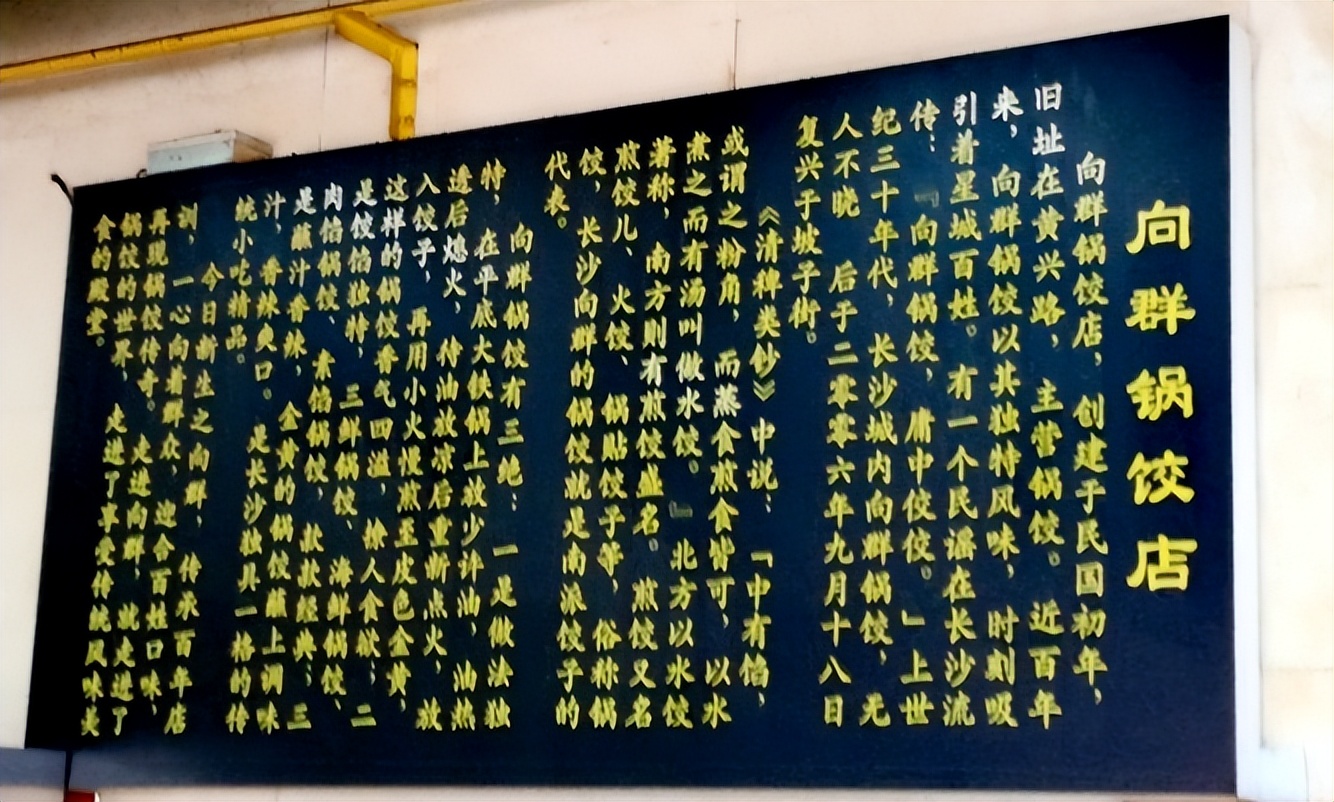 向群锅饺店
向群锅饺店，创建于民国初年，
旧址在黄兴路，主营锅饺。近百年
来，向群锅饺以其独特风味，时刻吸
引着星城百姓。有一个民谣在长沙流
传：『向群锅饺，庸中佼佼。』上世
纪三十年代，长沙城内向群锅饺，无
人不晓　后于二零零六年九月十八日
复兴于坡子街。
《清稗类钞》中说：『中有馅，
或谓之粉角，而蒸食煎食皆可，以水
煮之而有汤叫做水饺。』北方以水饺
著称，南方则有煎饺盛名。煎饺又名
煎饺儿、火饺、锅贴饺子等，俗称锅
饺，长沙向群的锅饺就是南派饺子的
代表。
向群锅饺有三绝：一是做法独
特，在平底大铁锅上放少许油，油热
透后熄火，待油放凉后重新点火，放
入饺子，再用小火慢煎至皮色金黄，
这样的锅饺香气四溢，徐人食欲；二
是饺馅独特，三鲜锅饺、海鲜锅饺、
肉馅锅饺、素馅锅饺，款款经典；三
是蘸汁香辣，金黄的锅饺蘸上调味
汁，香辣爽口。是长沙独具一格的传
统小吃精品。
今日新生之向群，传承百年店
训，一心向着群众，迎合百姓口味，
再现锅饺传奇。走进向群，就走进了
锅饺的世界，走进了享受传统风味美
食的殿堂。